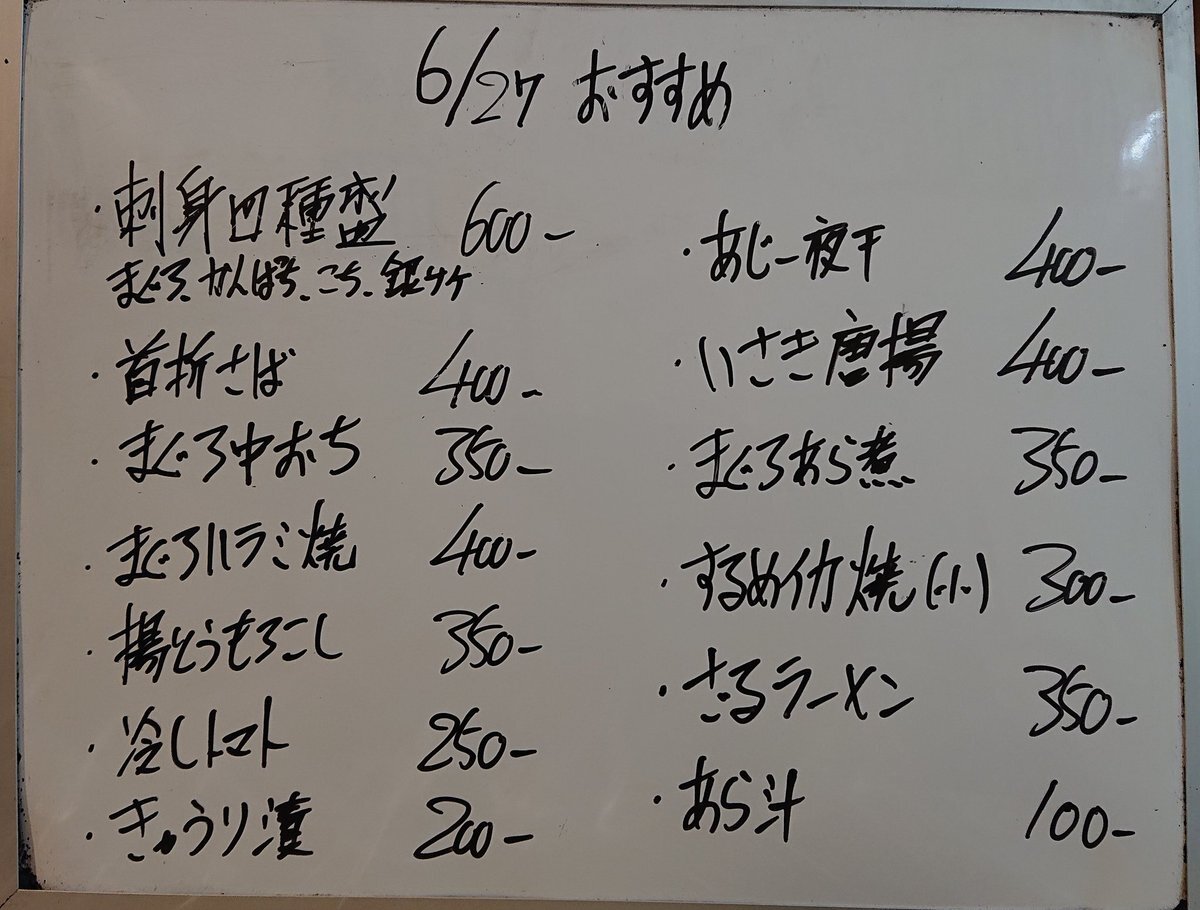 6/27 おすすめ
・刺身四種盛 600-
まぐろ、かんぱち、こち、銀サケ
・首折さば 400-
・まぐろ中おち 350-
・まぐろハラミ焼 400-
・揚とうもろこし 350-
・冷しトマト 250-
・きゅうり漬 200-
・あじ一夜干 400-
・いさき唐揚 400-
・まぐろあら煮 350-
・するめイカ焼(小) 300-
・ざるラーメン 350-
・あら汁 100-